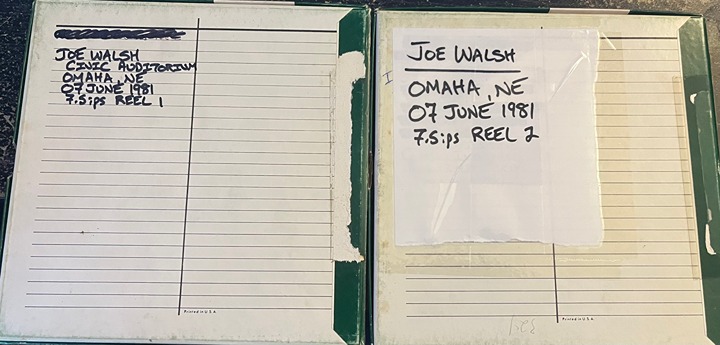 JOE WALSH
CIVIC AUDITORIUM
OMAHA, NE
07 JUNE 1981
7.5ips REEL 1
Printed in U.S.A.
JOE WALSH
OMAHA, NE
07 JUNE 1981
7.5ips REEL 2
Printed in U.S.A.